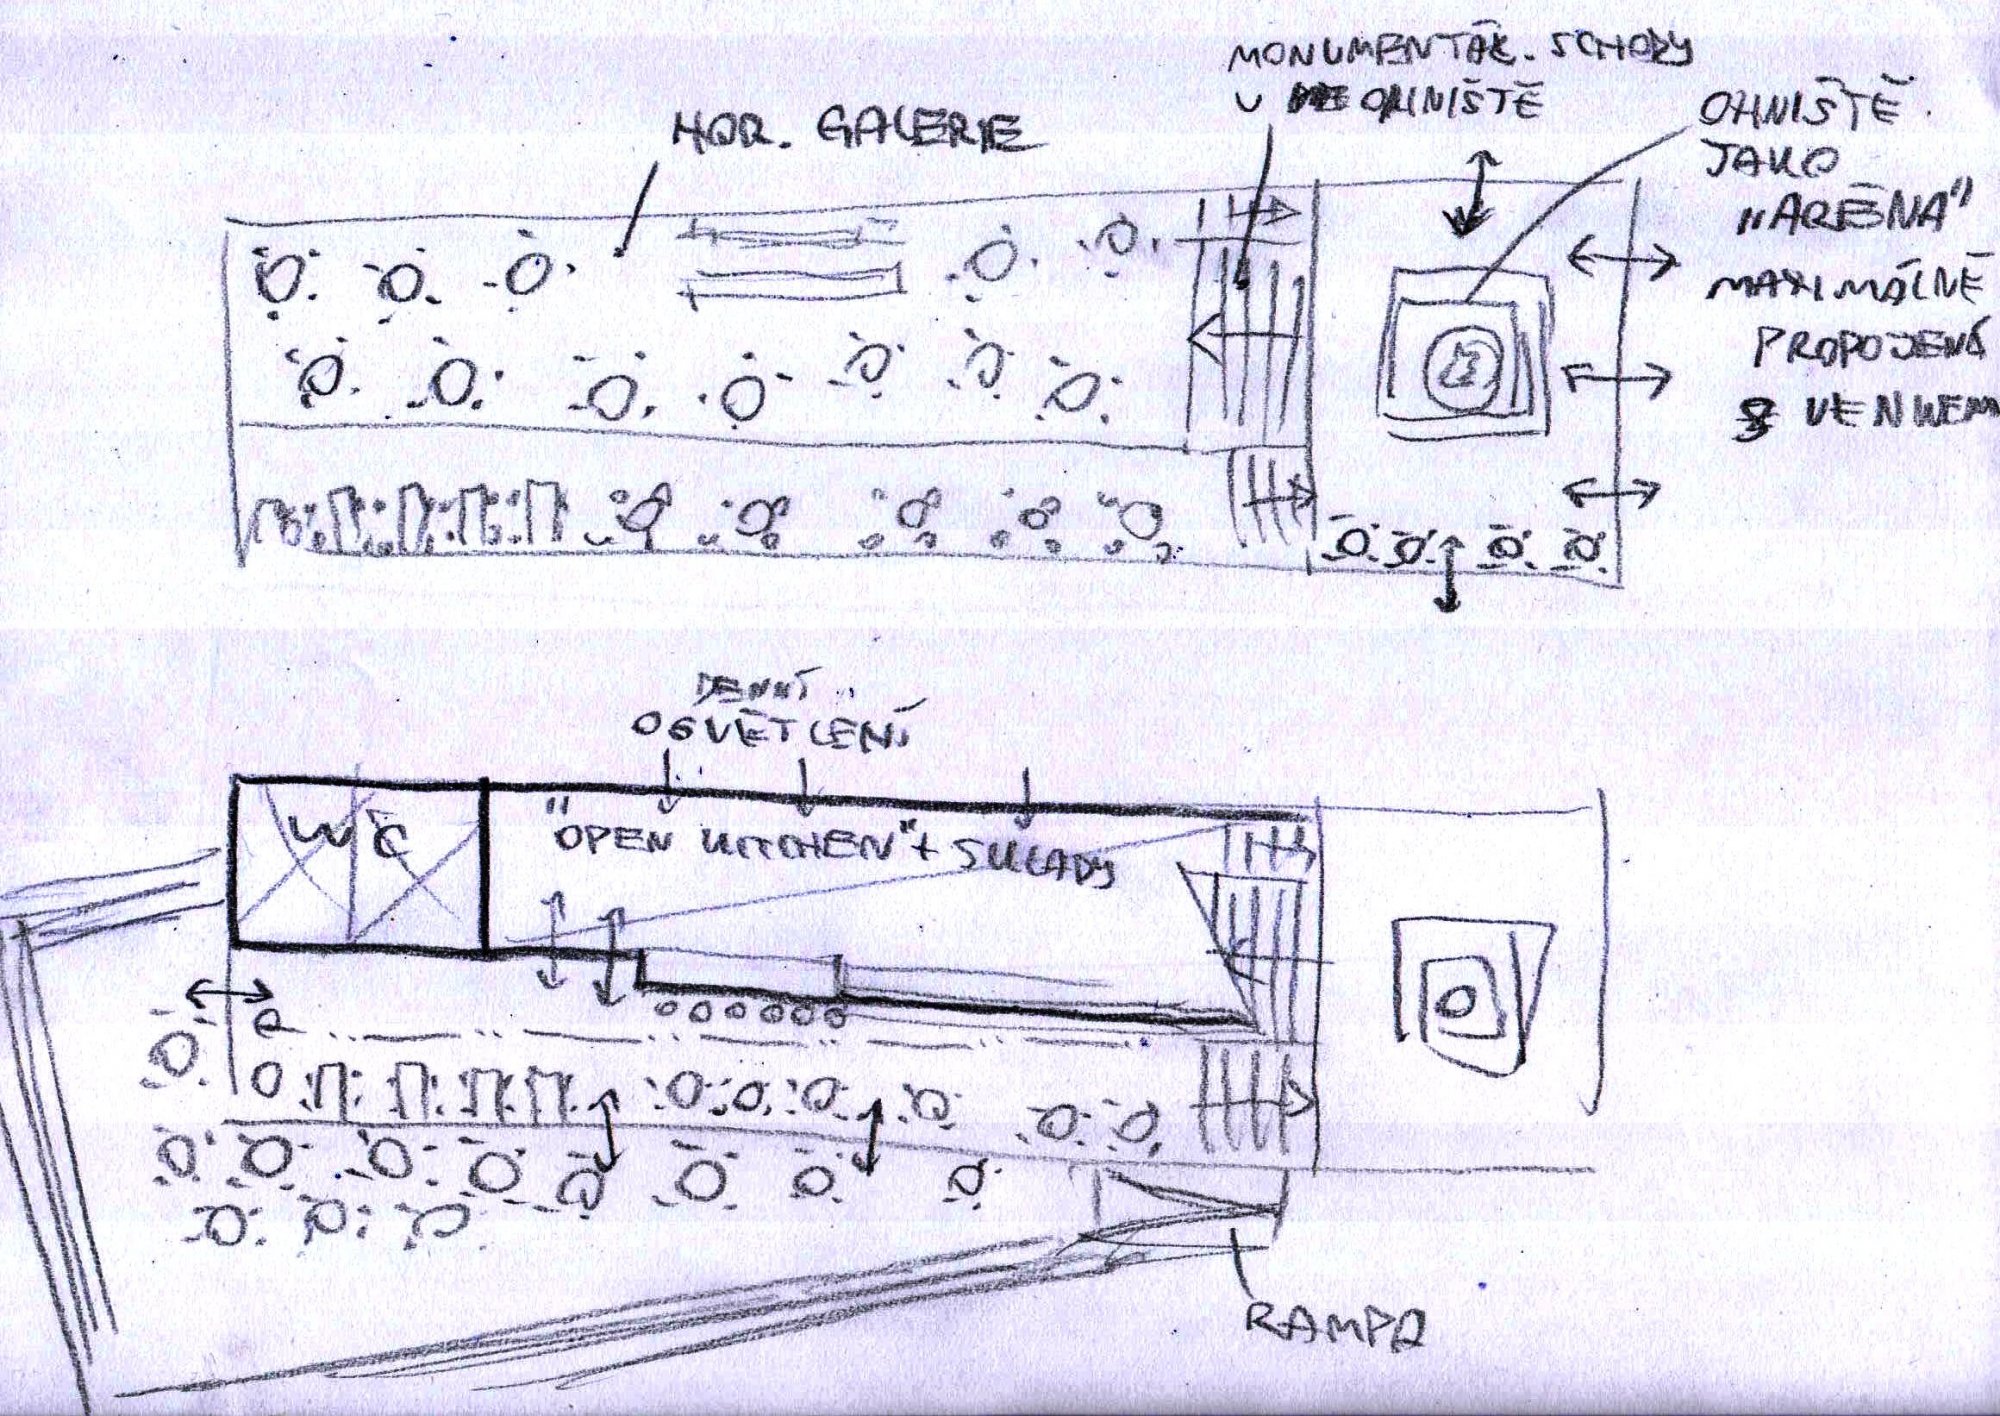 MONUMENTÁL. SCHODY
U OHNIŠTĚ
HOR. GALERIE
OHNIŠTĚ
JAKO
„ARÉNA"
MAXIMÁLNĚ
PROPOJENÁ
S VENKEM
DENNÍ
OSVĚTLENÍ
WC
"OPEN KITCHEN" + SKLADY
RAMPA